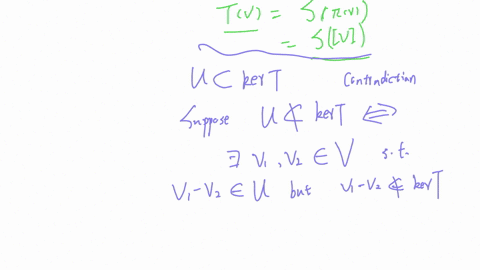 T(v) = S(π(v))
= S([v])
U ⊂ ker T Contradiction
Suppose U ⊄ ker T ⟺
∃ v₁, v₂ ∈ V s.t.
v₁-v₂ ∈ U but v₁-v₂ ∉ ker T